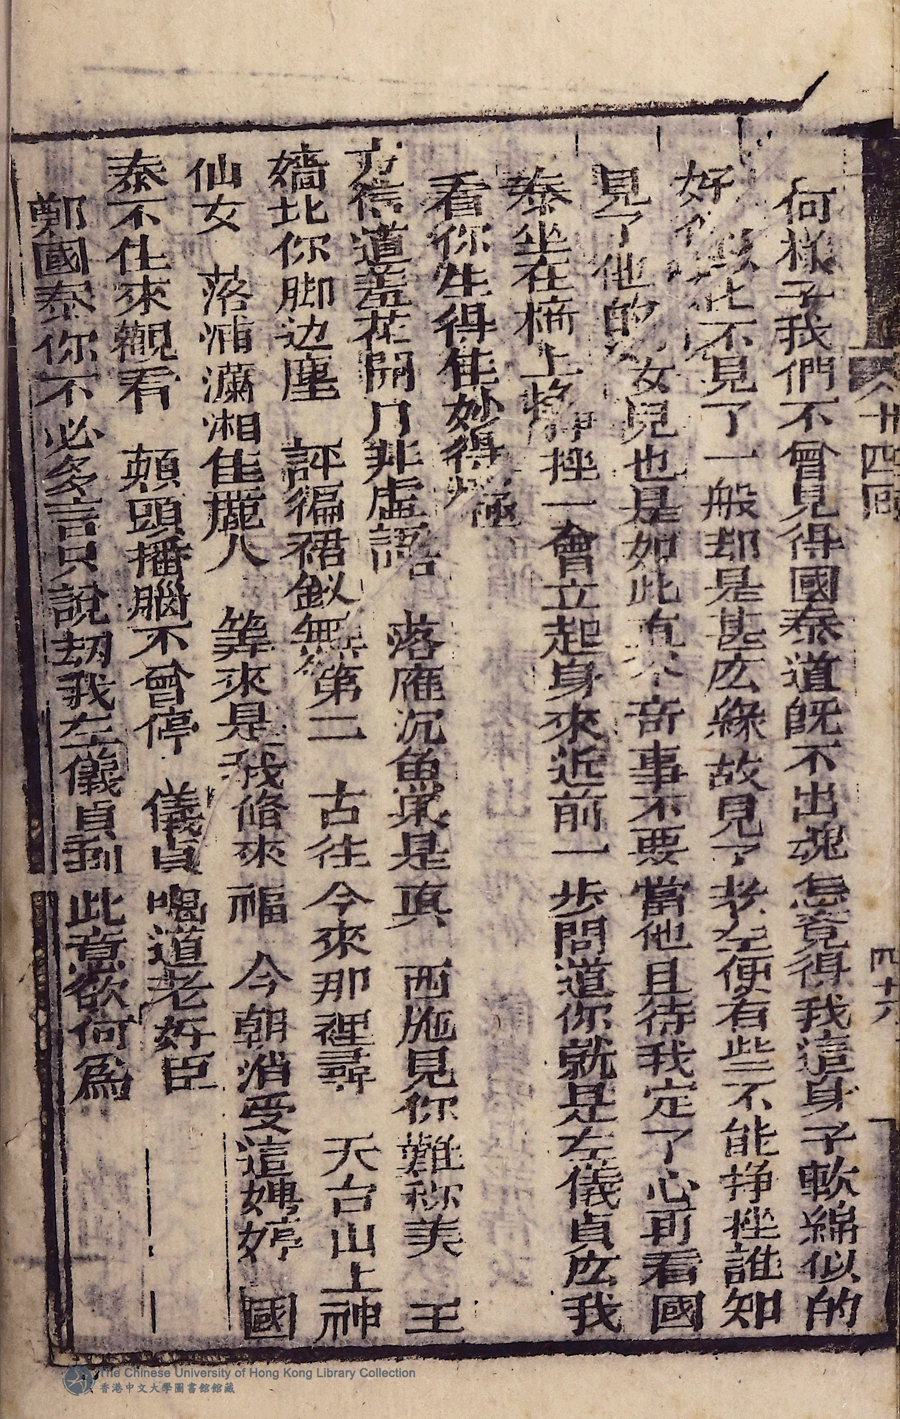 廿四回
四十六
何樣子我們不會見得國泰道旣不出魂怎竟得我這身子軟綿似的
好 不見了一般却是甚庅緣故見了老左便有些不能掙挫誰知
見了他的女兒也是如此真 事不要當他且待我定了心可看國
泰坐在椅上將 挫一會立起身來近前一步問道你就是左儀貞庅我
看你生得佳妙得 極
方信道羞花開月非虛語　落雁沉魚果是眞　西施見你難称美　王
嬙比你脚边塵　評徧裙釵無第二　古往今來那裡尋　天台山上神
仙女　落浦瀟湘佳麗人　等來是我修來福　今朝消受這娉婷　國
泰不住來觀看　顛頭播腦不曾停　儀貞喝道老奸臣
鄭國泰你不必多言只說刧我左儀貞到此意欲何爲
The Chinese University of Hong Kong Library Collection
香港中文大學圖書館館藏